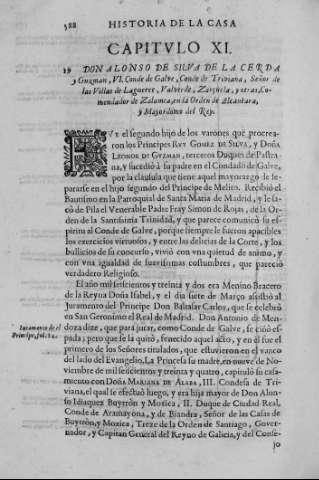 588 HISTORIA DE LA CASA
CAPITVLO XI.
19 DON ALONSO DE SILVA DE LA CERDA
y Guzman, VI. Conde de Galve, Conde de Triviana, Señor de
las Villas de Lagoeros, Valverde, y otras, Co-
mendador de Zalamea, en la Orden de Alcantara,
y Mayordomo del Rey.
FVe el segundo hijo de los varones que procrea-
ron los Principes RVY GOMEZ DE SILVA, y DOÑA
LEONOR DE GVZMAN, terceros Duques de Pastra-
na, y sucediò a su padre en el Condado de Galve,
por la clausula que tiene aquel mayorazgo de se-
pararse en el hijo segundo del Principe de Melito. Recibiò el
Bautismo en la Parroquial de Santa Maria de Madrid, y le sa-
cò de Pila el Venerable Padre Fray Simon de Rojas, de la Or-
den de la Santissima Trinidad, y que parece comunicò su es-
piritu al Conde de Galve, porque siempre le fueron apacibles
los exercicios virtuosos, y entre las delicias de la Corte, y los
bullicios de su concurso, viviò con vna quietud de animo, y
con vna igualdad de suavissimas costumbres, que pareciò
verdadero Religioso.
El año mil seiscientos y treinta y dos era Menino Bracero
de la Reyna Doña Isabel, y el dia siete de Março assistiò al
Juramento del Principe Don Baltasar Carlos, que se celebrò
en San Geronimo el Real de Madrid. Don Antonio de Men-
Juramento del
Principe, fol.
doza dize, que para jurar, como Conde de Galve, se ciñò es-
pada; pero que se la quitò, fenecido aquel acto, y en èl fue el
primero de los Señores titulados, que estuvieron en el vanco
del lado del Evangelio. La Princesa su madre, en nueve de No-
viembre de mil seiscientos y treinta y quatro, capitulò su casa-
miento con DOÑA MARIANA DE ALAVA, III. Condesa de Tri-
viana, el qual se efectuò luego, y era hija mayor de Don Alon-
so Idiaquez Buytròn y Moxica, II. Duque de Ciudad Real,
Conde de Aramayona, y de Biandra, Señor de las Casas de
Buytròn, y Moxica, Treze de la Orden de Santiago, Gover-
nador, y Capitan General del Reyno de Galicia, y del Conse-
jo